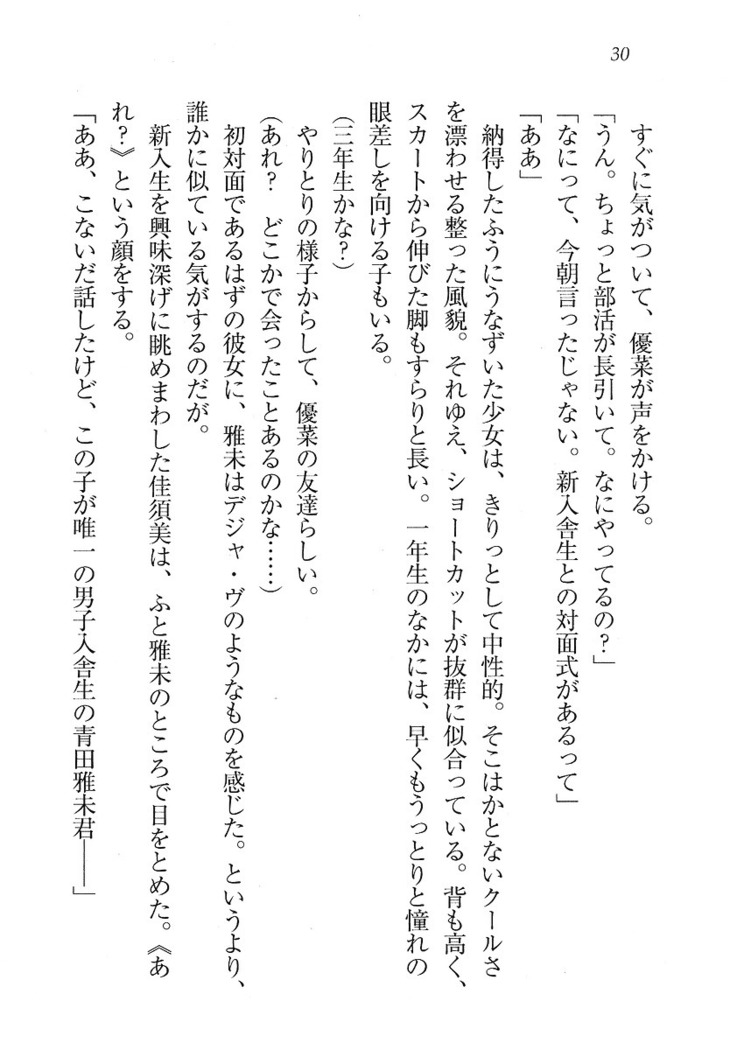 30
すぐに気がついて、優菜が声をかける。
「うん。ちょっと部活が長引いて。なにやってるの？」
「なにって、今朝言ったじゃない。新入舎生との対面式があるって」
「ああ」
納得したふうにうなずいた少女は、きりっとして中性的。そこはかとないクールさ
を漂わせる整った風貌。それゆえ、ショートカットが抜群に似合っている。背も高く、
スカートから伸びた脚もすらりと長い。一年生のなかには、早くもうっとりと憧れの
眼差しを向ける子もいる。
（三年生かな？）
やりとりの様子からして、優菜の友達らしい。
（あれ？　どこかで会ったことあるのかな……）
初対面であるはずの彼女に、雅未はデジャ・ヴのようなものを感じた。というより、
誰かに似ている気がするのだが。
新入生を興味深げに眺めまわした佳須美は、ふと雅未のところで目をとめた。《あ
れ？》という顔をする。
「ああ、こないだ話したけど、この子が唯一の男子入舎生の青田雅未君――」